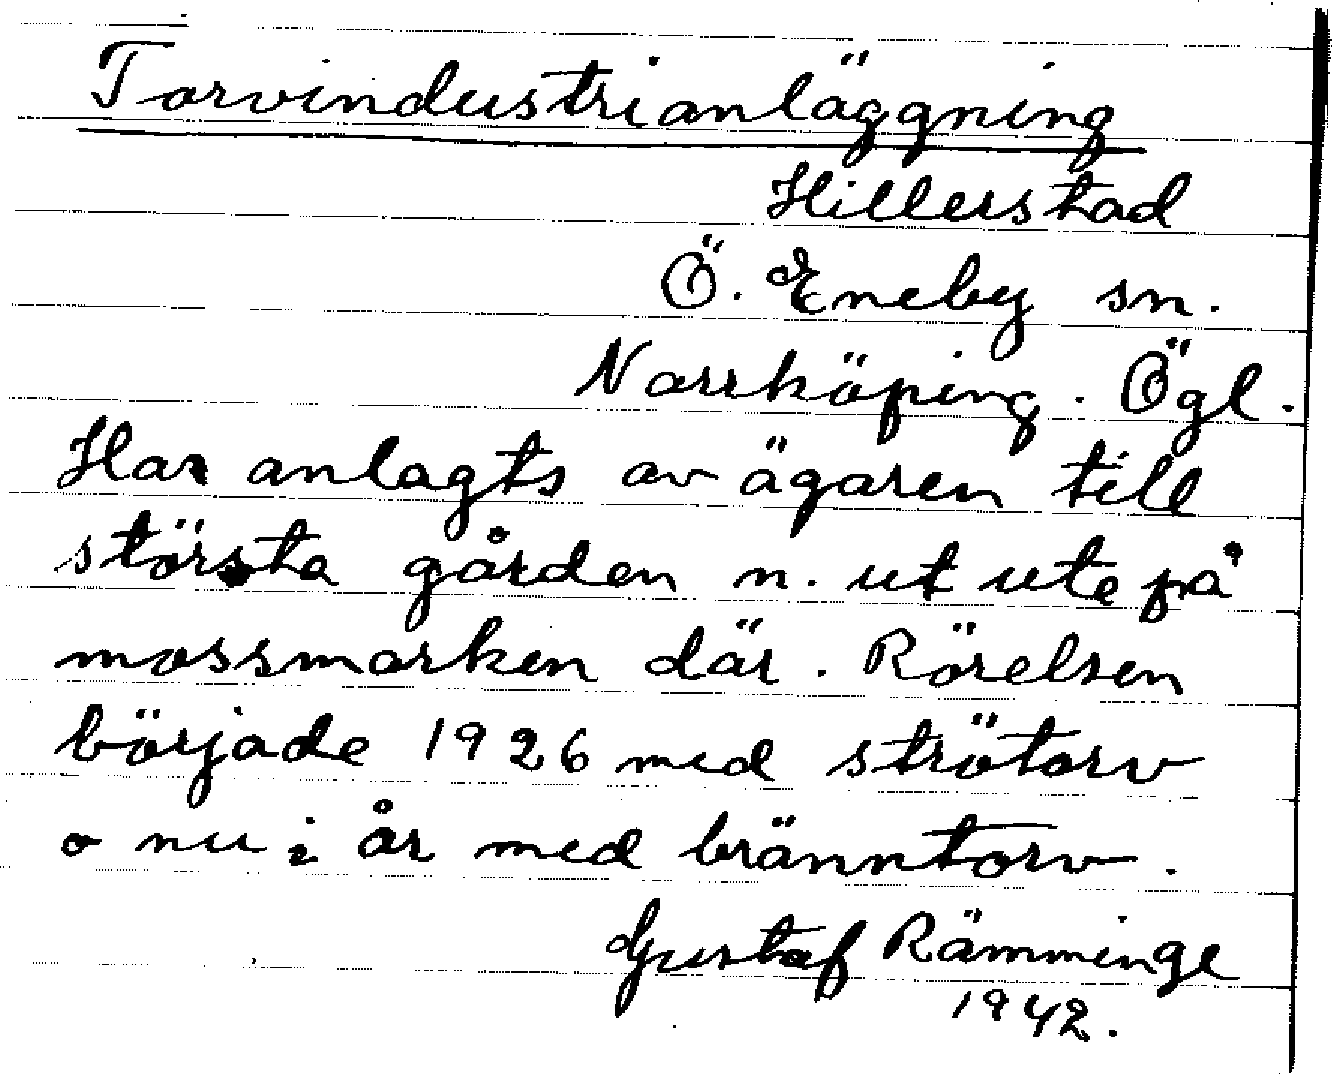 Torvindustrianläggning
Hillerstad
Ö. Eneby sn.
Norrköping. Ögl.
Har anlagts av ägaren till
största gården n. ut ute på
mossmarken där. Rörelsen
började 1926 med strötorv
o nu i år med bränntorv.
Gustaf Rämminge
1942.